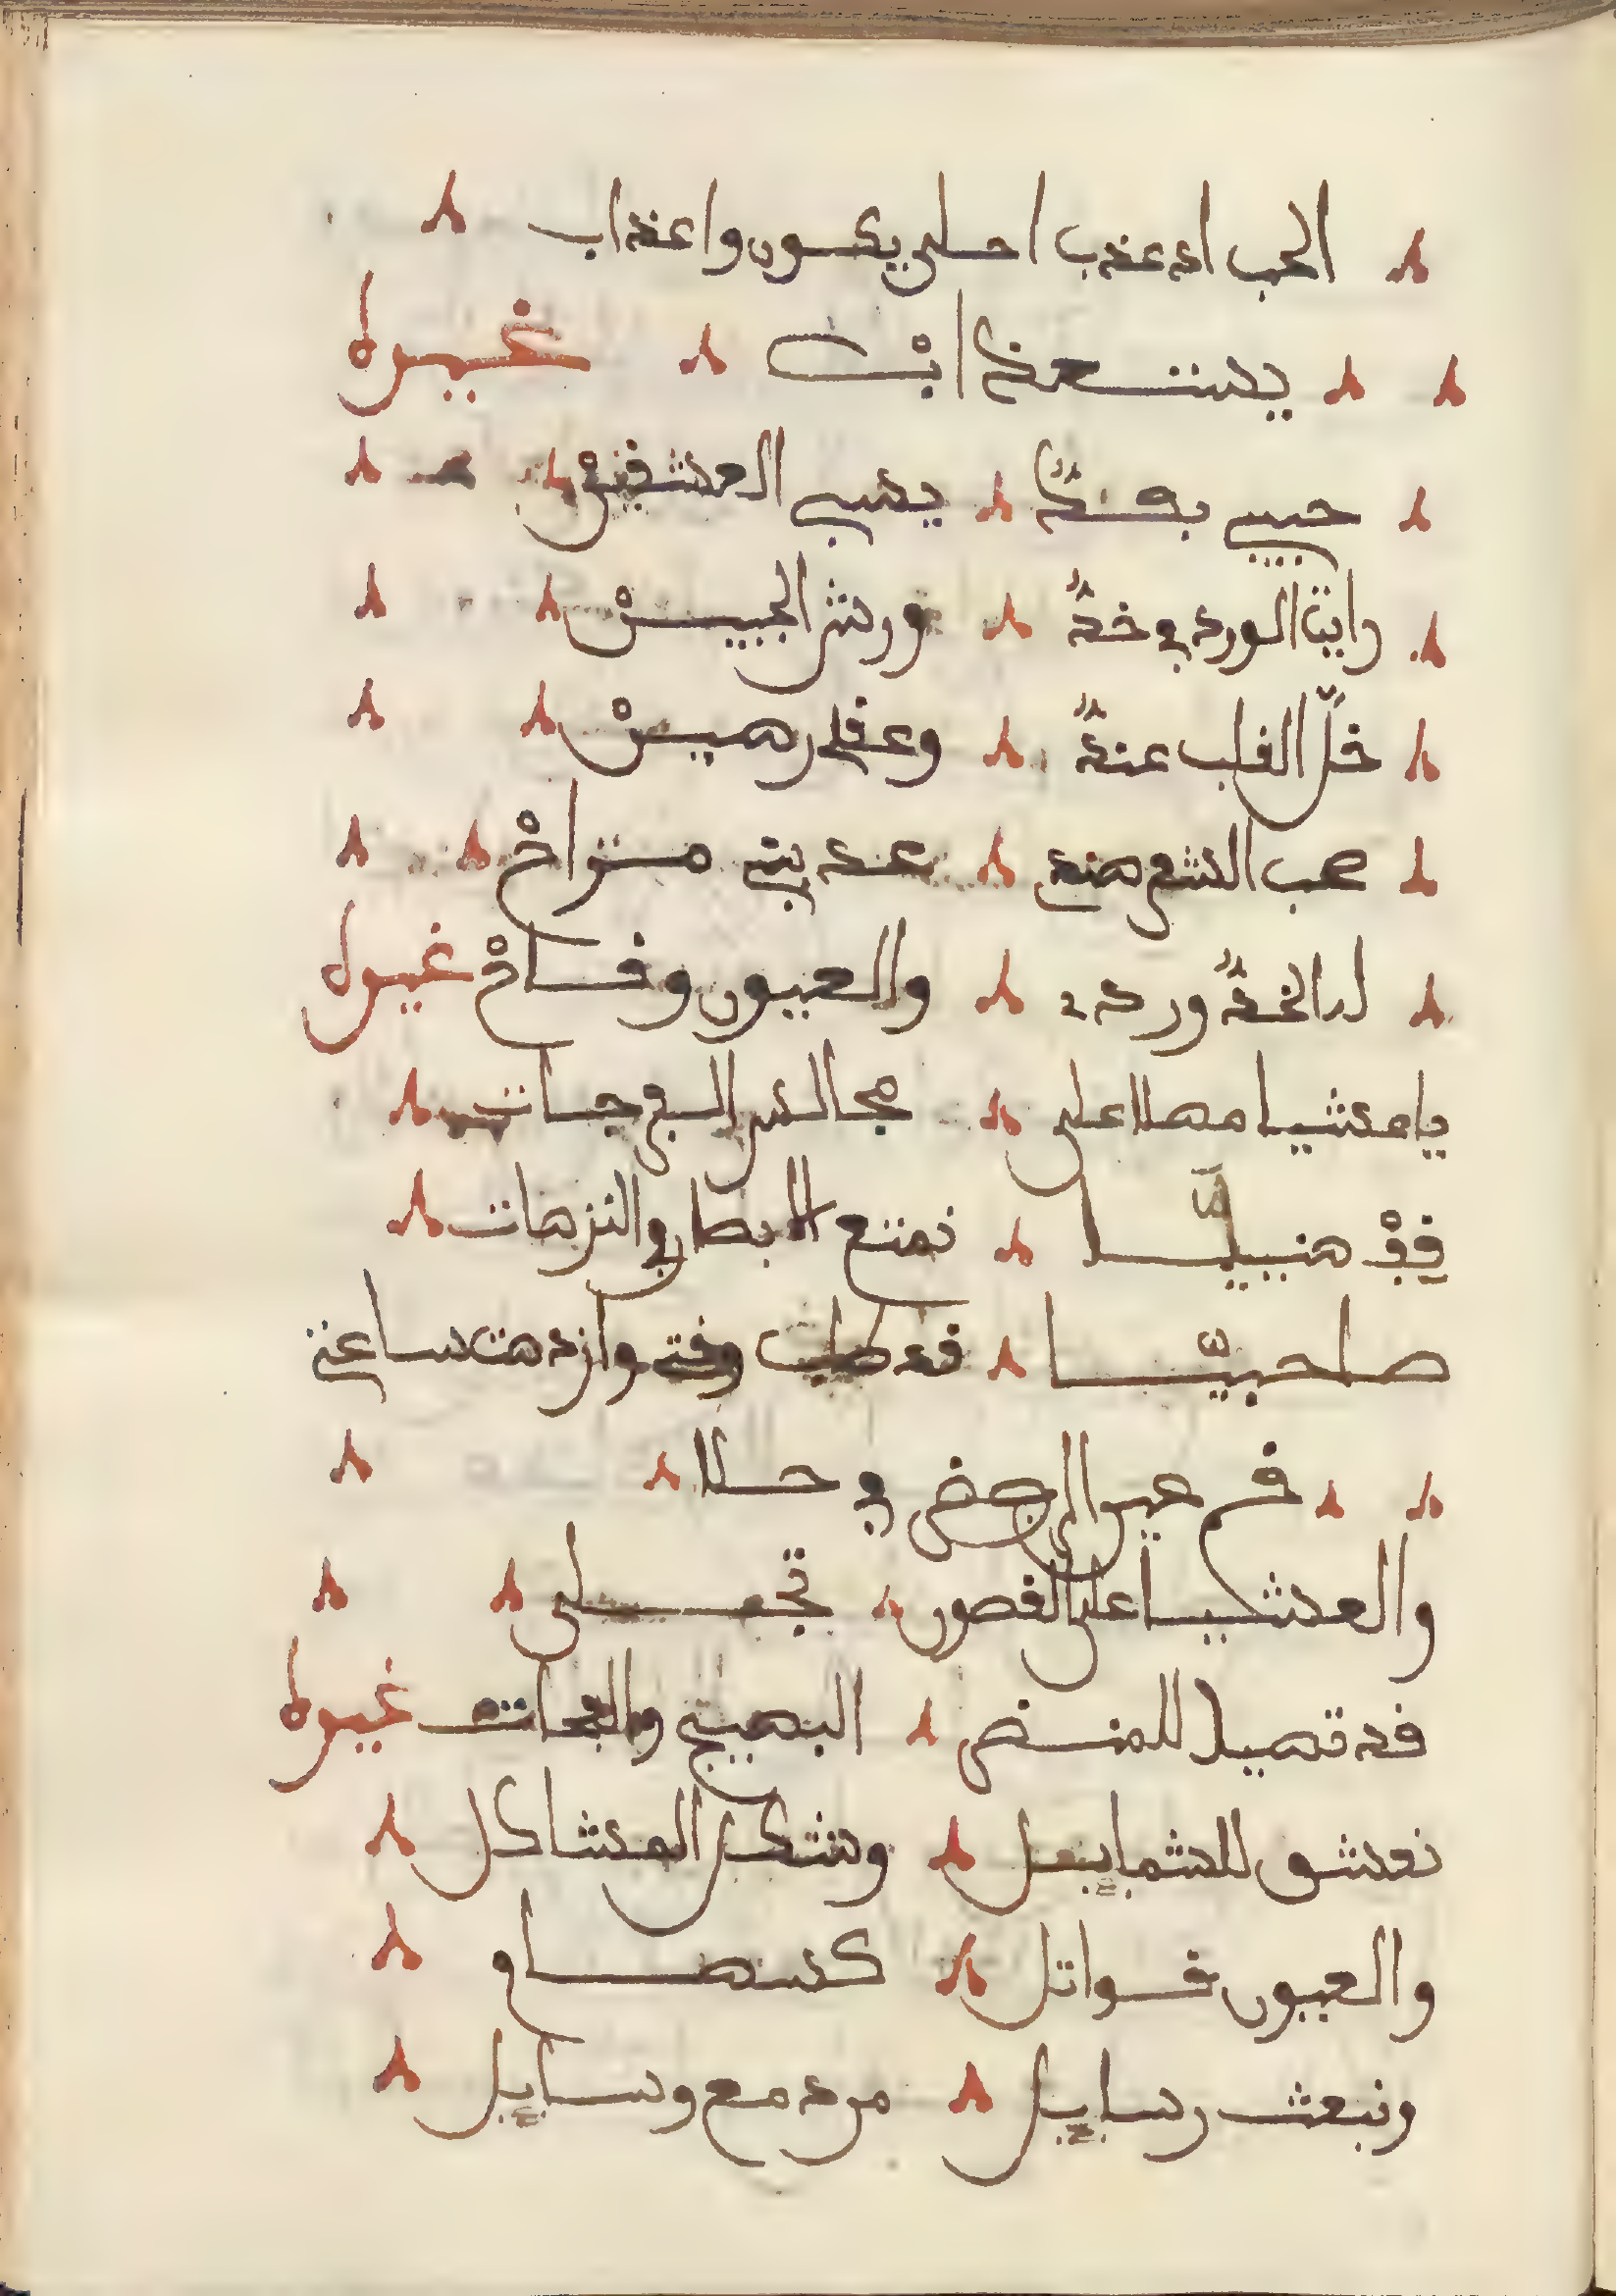 الحب اد عذب احلى يكون واعذاب
يستعذ ابْ غيره
حبيبي بقدُّ يسبي العشقينْ
رايت الورد في خدُّ ورش الجبينْ
خلّ القلب عندُ وعقلي رهينْ
صب الشعر عذبني
لد الخدُّ ورد والعيون وقاحْ غيره
يا معشيا مصلا على مجالس السرجات
قِفْ هنييّا نمتع الابصار في النزهات
صاحبيّا قد طاب وقتي وازدهت ساعتي
قم في حلا
والعشيا على القصور تجلى
قد تميل للمنض البهيج والبجات غيره
نعشق للشمايل ونشكر المشاكل
والعيون قواتل كسهام
ونبعث رسايل من دمع وسايل